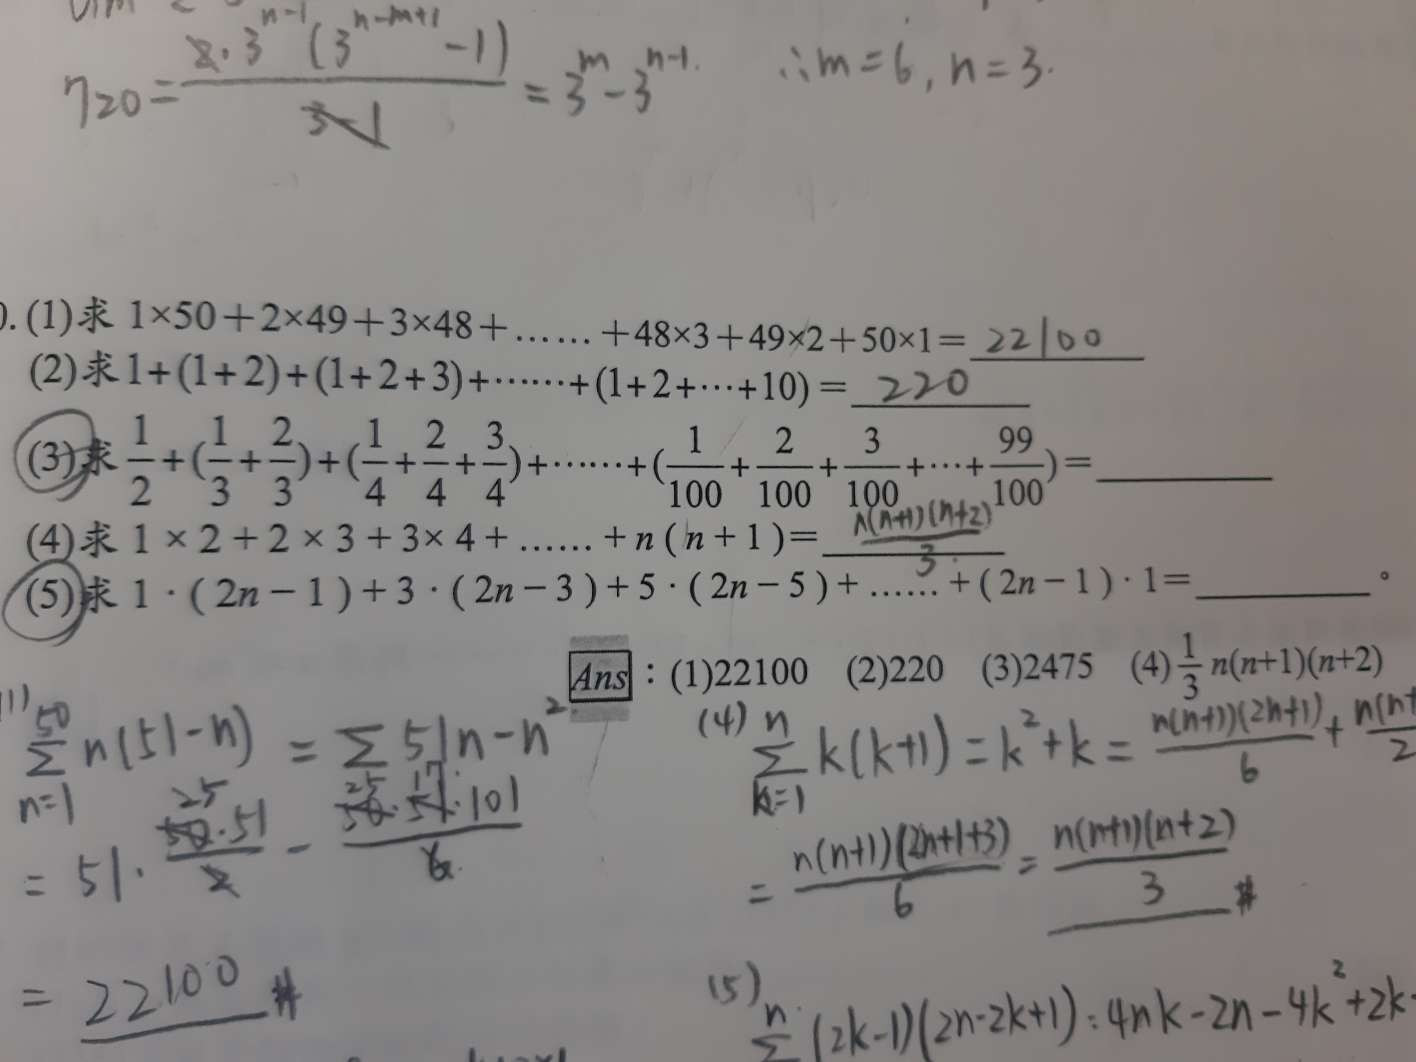 720 = 2·3^{n-1}(3^{n-m+1}-1) / 3-1 = 3^m - 3^{n-1}. ∴m=6, n=3.
(1)求 1×50+2×49+3×48+……+48×3+49×2+50×1= 22100
(2)求1+(1+2)+(1+2+3)+……+(1+2+…+10)= 220
(3)求 1/2+(1/3+2/3)+(1/4+2/4+3/4)+……+(1/100+2/100+3/100+…+99/100)=
(4)求 1×2+2×3+3×4+……+n(n+1)= n(n+1)(n+2)/3
(5)求 1·(2n-1)+3·(2n-3)+5·(2n-5)+……+(2n-1)·1= 。
Ans:(1)22100 (2)220 (3)2475 (4)1/3 n(n+1)(n+2)
(1) 50 Σ n=1 n(51-n) = Σ 51n-n²
= 51· 50·51/2 - 50·51·101/6
25 25 17
= 22100 #
(4) n Σ k=1 k(k+1) = k²+k = n(n+1)(2n+1)/6 +
= n(n+1)(2n+1+3)/6 = n(n+1)(n+2)/3 #
(5) n Σ (2k-1)(2n-2k+1) = 4nk-2n-4k²+2k